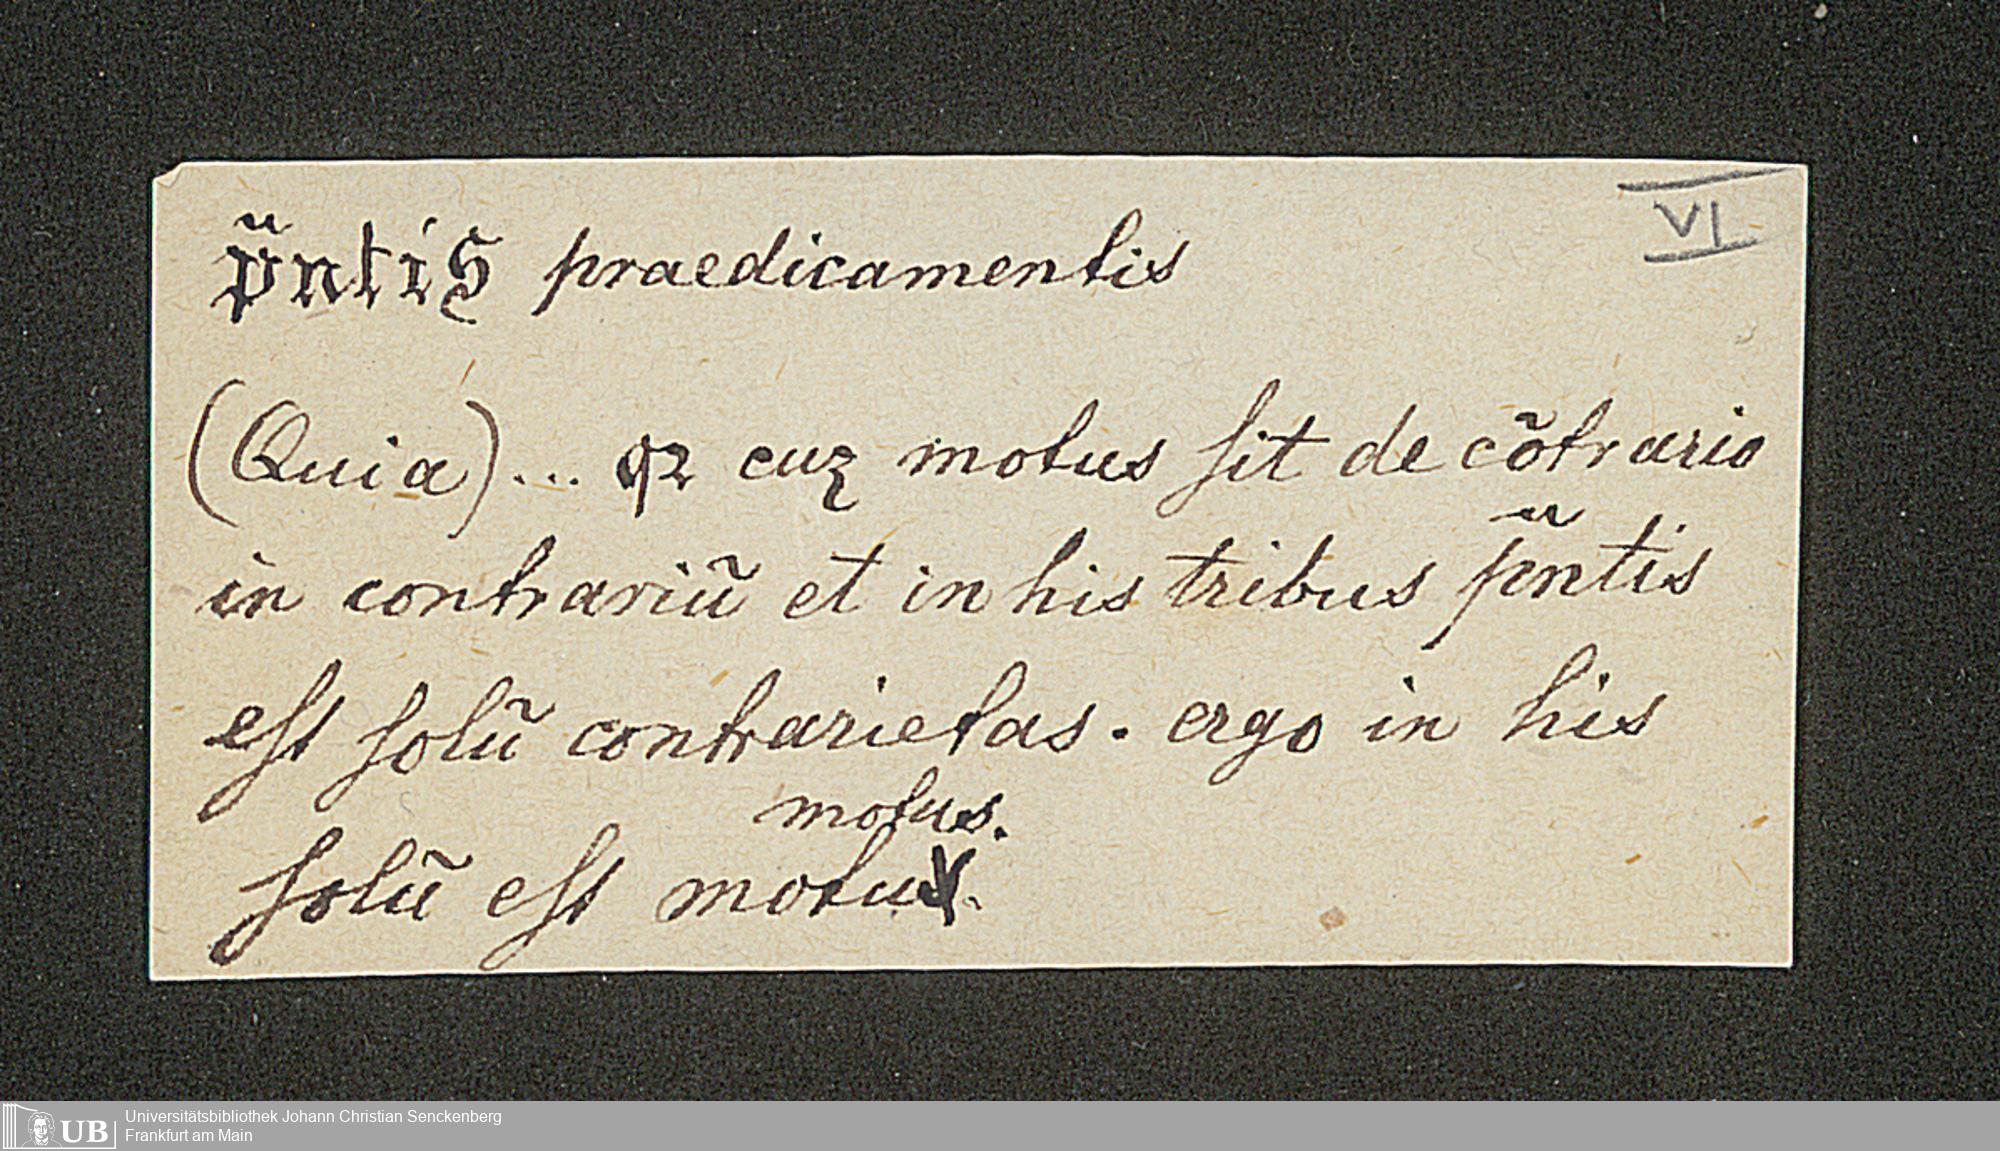 p̃ntis praedicamentis
VI
(Quia)... qꝛ cuʒ motus ſit de cõtrario
in contrariũ et in his tribus p̃ntis
eſt ſolũ contrarietas. ergo in his
motus.
ſolũ eſt motus.
UB
Universitätsbibliothek Johann Christian Senckenberg
Frankfurt am Main